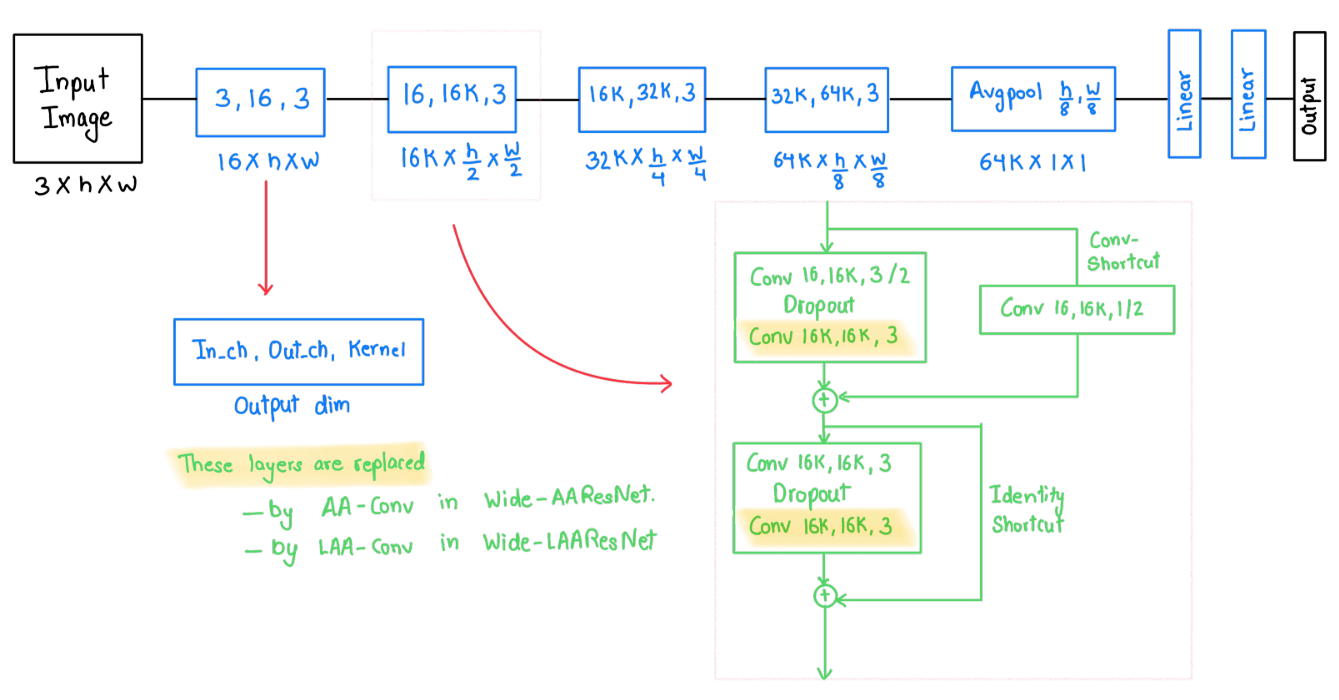 Input
Image
3 X h X W
3, 16, 3
16 X h X W
16, 16K, 3
16K X h/2 X W/2
16K, 32K, 3
32K X h/4 X W/4
32K, 64K, 3
64K X h/8 X W/8
Avgpool h/8, W/8
64K X 1 X 1
Linear
Linear
Output
In_ch, Out_ch, Kernel
Output dim
These layers are replaced
- by AA-Conv in Wide-AAResNet.
- by LAA-Conv in Wide-LAAResNet
Conv 16, 16K, 3/2
Dropout
Conv 16K, 16K, 3
Conv-
Shortcut
Conv 16, 16K, 1/2
+
Conv 16K, 16K, 3
Dropout
Conv 16K, 16K, 3
Identity
Shortcut
+